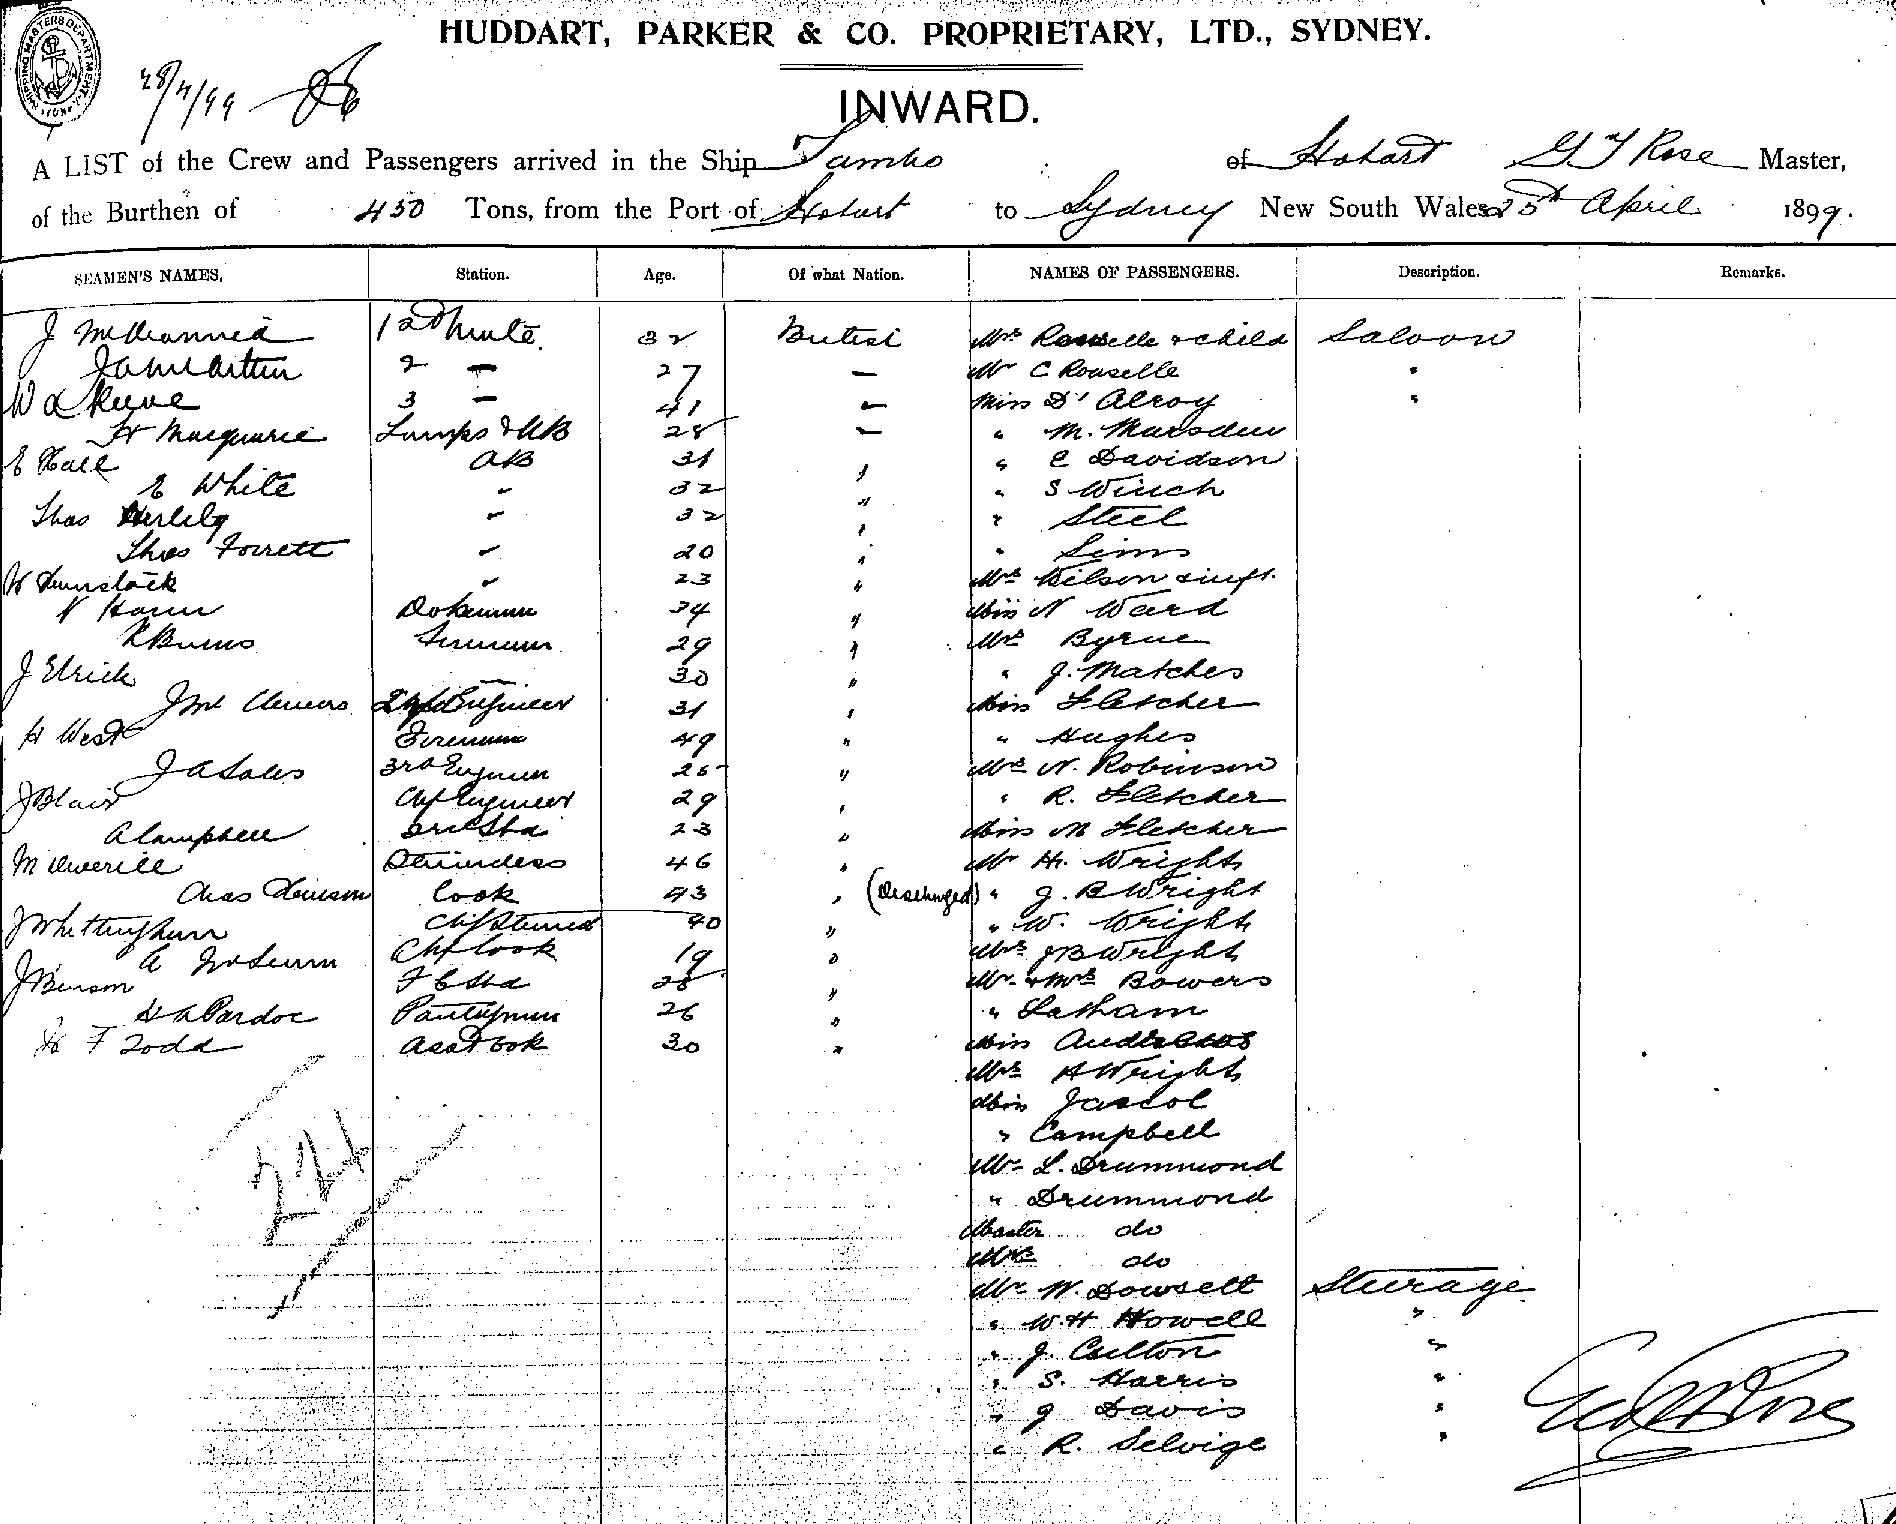 HUDDART, PARKER & CO. PROPRIETARY, LTD., SYDNEY.
INWARD.
A LIST of the Crew and Passengers arrived in the Ship Tambo of Hobart G T Rose Master,
of the Burthen of 450 Tons, from the Port of Hobart to Sydney New South Wales 25th April 1899.
SEAMEN'S NAMES. Station. Age. Of what Nation. NAMES OF PASSENGERS. Description. Remarks.
J 1st Mate 32 British Mrs Rouselle & child Saloon
2 — 27 — Mr C Rouselle "
W 3 — 41 — Miss D' Alroy "
Macquarie Lamps & AB 28 — " M. Marsden
E Hall AB 31 " " C Davidson
E White " 32 " " S Winch
Thos Herlily " 32 " " Steel
Thos Forrett " 20 " " Sims
" 23 " Mrs Wilson & inft.
Donkeyman 34 " Miss N Ward
R Burns Fireman 29 " Mrs Byrne
J Elrick — 30 " " J. Matches
Engineer 31 " Miss Fletcher
H West Fireman 49 " " Hughes
3rd Engineer 25 " Mrs N. Robinson
J Blair Chf Engineer 29 " " R. Fletcher
A Campbell 23 " Miss M Fletcher
M Averill Stewardess 46 " Mr H. Wright
Chas Cook 43 " (Discharged) " J. B Wright
J Whittingham Chf Steward 40 " " W. Wright
A Chf Cook 19 " Mrs J B Wright
J Benson F C Std 28 " Mr & Mrs Bowers
H A Pardoe Pantryman 26 " " Latham
H F Todd Asst Cook 30 " Miss Andrews
Mrs H Wright
Miss
" Campbell
Mr L. Drummond
" Drummond
Master do
Mrs do
Mr W. Dowsett Steerage
" W. H Howell "
" J. Culton "
" S. Harris "
" J Davis "
" R. Selvige "
Geo T Rose